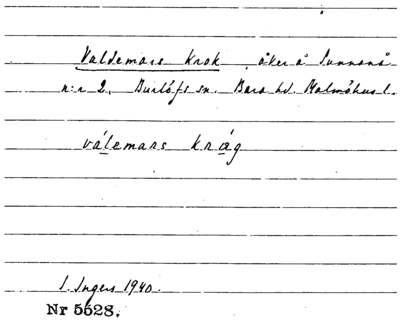 Valdemars Krok, åker å Sunnanå
n:r 2, Burlöfs sn. Bara hd. Malmöhus l.
válemars kråg
I. Ingers 1940.
Nr 5528.